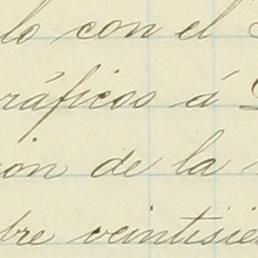 lo con el
ráficos á
ion de la
bre veintisie